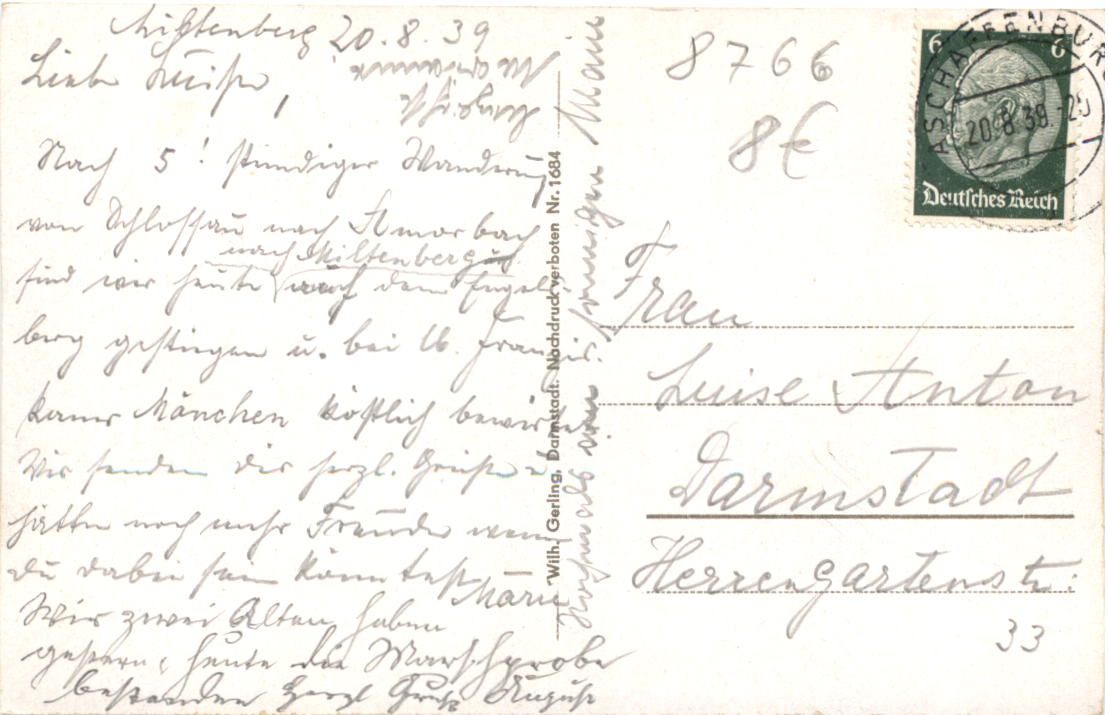 Miltenberg 20.8.39
Liebe Luise,
Nach 5! stündiger Wanderung
von Schlossau nach Amorbach
nach Miltenberg u.
sind wir heute auf dem Engels-
berg gestiegen u. bei den Franzis-
kaner Mönchen köstlich bewirtet.
Wir senden dir herzl. Grüße u.
hätten noch mehr Freude wenn
du dabei sein könntest
Marie
Wir zwei Alten haben
gestern u. heute die Marschprobe
bestanden Herzl Gruß August
Nochmals vom sonnigen Main
Marianne
Wilh. Gerling, Darmstadt. Nachdruck verboten Nr. 1684
8766
8€
6 6
Deutsches Reich
ASCHAFFENBURG
20.8.39.-20
Frau
Luise Anton
Darmstadt
Herrengartenstr.
33